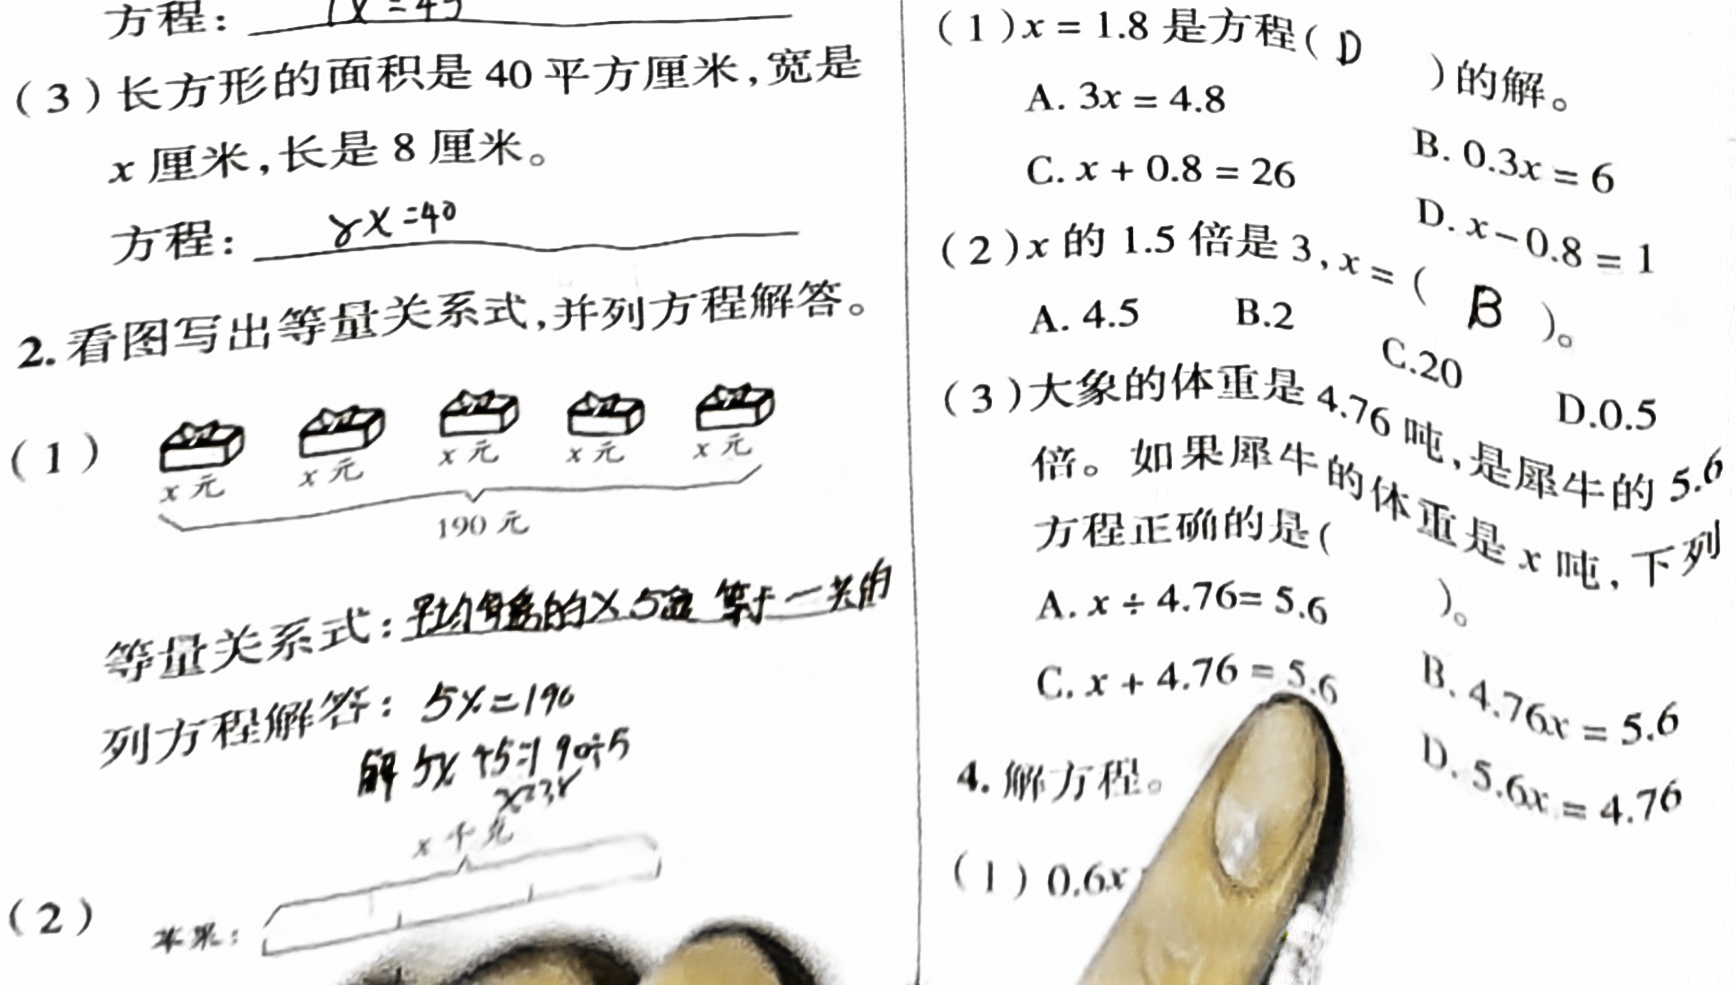 方程：
(3)长方形的面积是40平方厘米,宽是
x厘米,长是8厘米。
方程： 8x=40
2.看图写出等量关系式,并列方程解答。
(1)
x元 x元 x元 x元 x元
190元
等量关系式：
列方程解答：5x=190
解 5x÷5=190÷5
x=38
x千克
(2) 苹果：
(1)x=1.8是方程( D )的解。
A. 3x=4.8 B. 0.3x=6
C. x+0.8=26 D. x-0.8=1
(2)x的1.5倍是3,x=( B )。
A. 4.5 B.2 C.20 D.0.5
(3)大象的体重是4.76吨,是犀牛的5.6
倍。如果犀牛的体重是x吨,下列
方程正确的是( )。
A. x÷4.76=5.6 B. 4.76x=5.6
C. x+4.76=5.6 D. 5.6x=4.76
4.解方程。
(1)0.6x